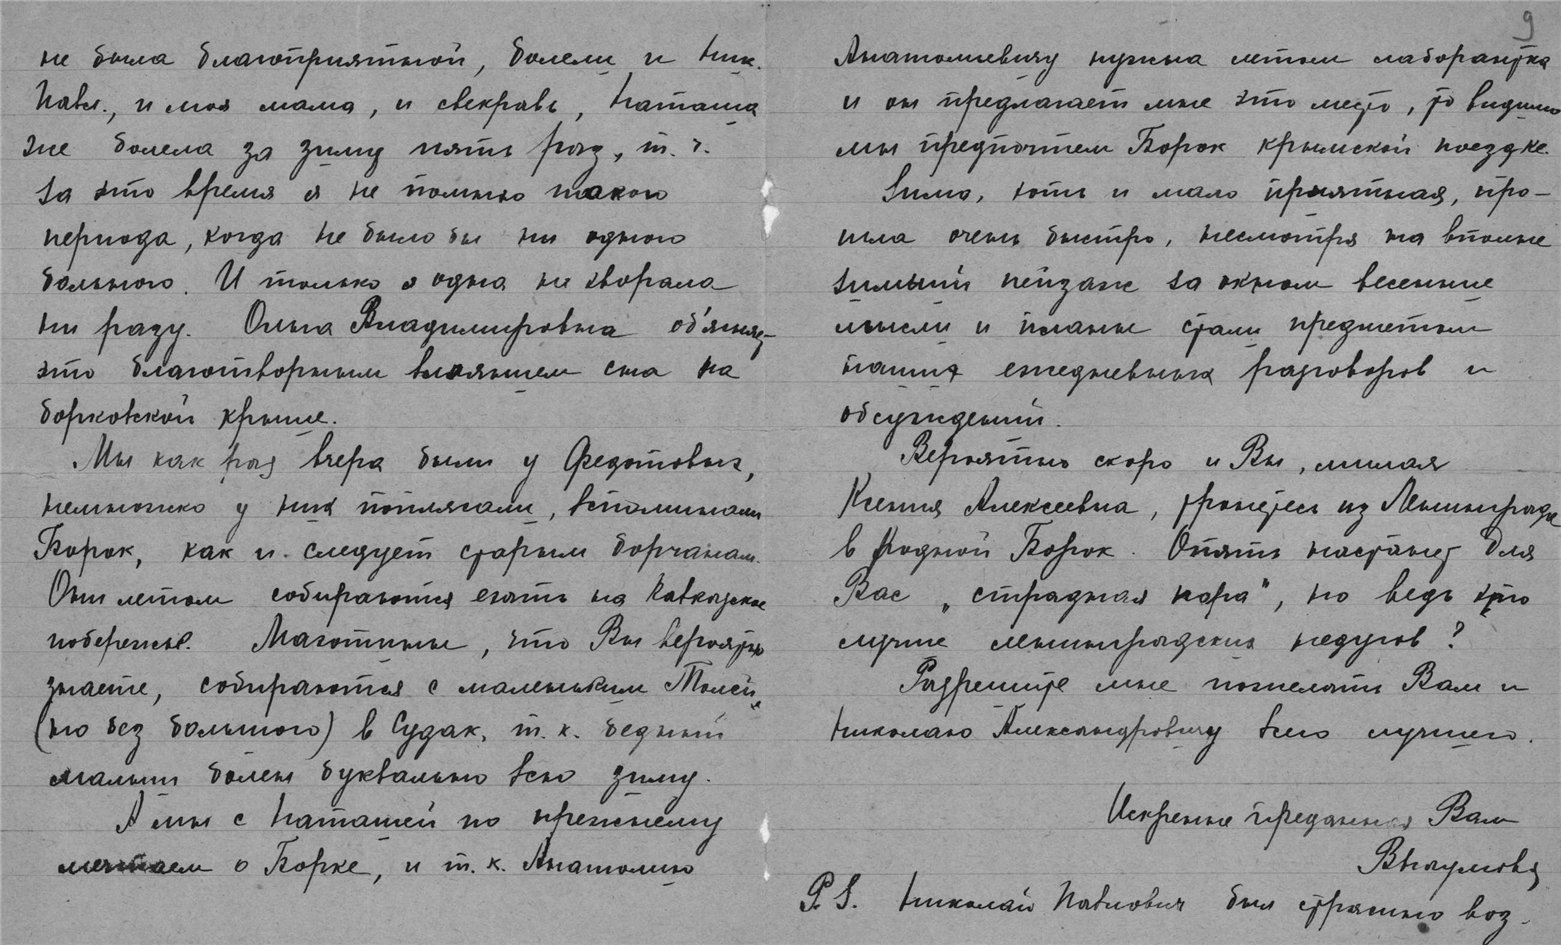 не была благоприятной, болели и Ник.
Павл., и моя мама, и свекровь, Наташа
же болела за зиму пять раз, т. ч.
за это время я не помню такого
периода, когда не было бы ни одного
больного. И только я одна не хворала
ни разу. Ольга Владимировна об'ясняет
это благотворным влиянием сна на
борковской крыше.
Мы как раз вчера были у Федотовых,
немножко у них поплясали, вспоминали
Борок, как и следует старым борчанам.
Они летом собираются ехать на Кавказское
побережье. Маготины, что Вы вероятно
знаете, собираются с маленьким Толей
(но без большого) в Судак, т. к. бедный
малыш болен буквально всю зиму.
А мы с Наташей по прежнему
мечтаем о Борке, и т. к. Анатолию
9
Анатолиевичу нужна летом лаборантка
и он предлагает мне это место, то видимо
мы предпочтем Борок крымской поездке.
Зима, хоть и мало приятная, про-
шла очень быстро, несмотря на вполне
зимний пейзаж за окном весенние
мысли и планы стали предметом
наших ежедневных разговоров и
обсуждений.
Вероятно скоро и Вы, милая
Ксения Алексеевна, тронетесь из Ленинграда
в родной Борок. Опять настанет для
Вас „страдная пора", но ведь это
лучше ленинградских недугов?
Разрешите мне пожелать Вам и
Николаю Александровичу всего лучшего.
Искренне преданная Вам
ВНаумова
P.S. Николай Павлович был страшно воз-